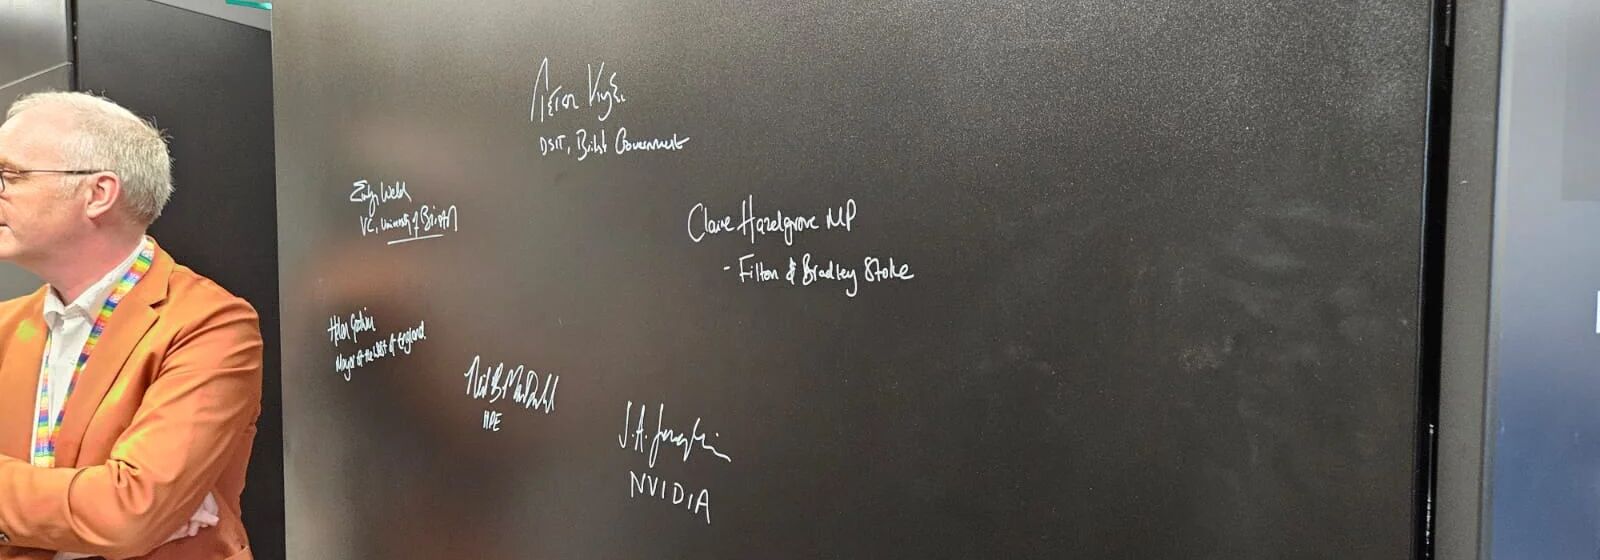 Peter Kyle
DSIT, British Government
Evelyn Welch
VC, University of Bristol
Claire Hazelgrove MP
- Filton & Bradley Stoke
Helen Godwin
Mayor of the West of England
Neil B MacDonald
HPE
J.A.
NVIDIA